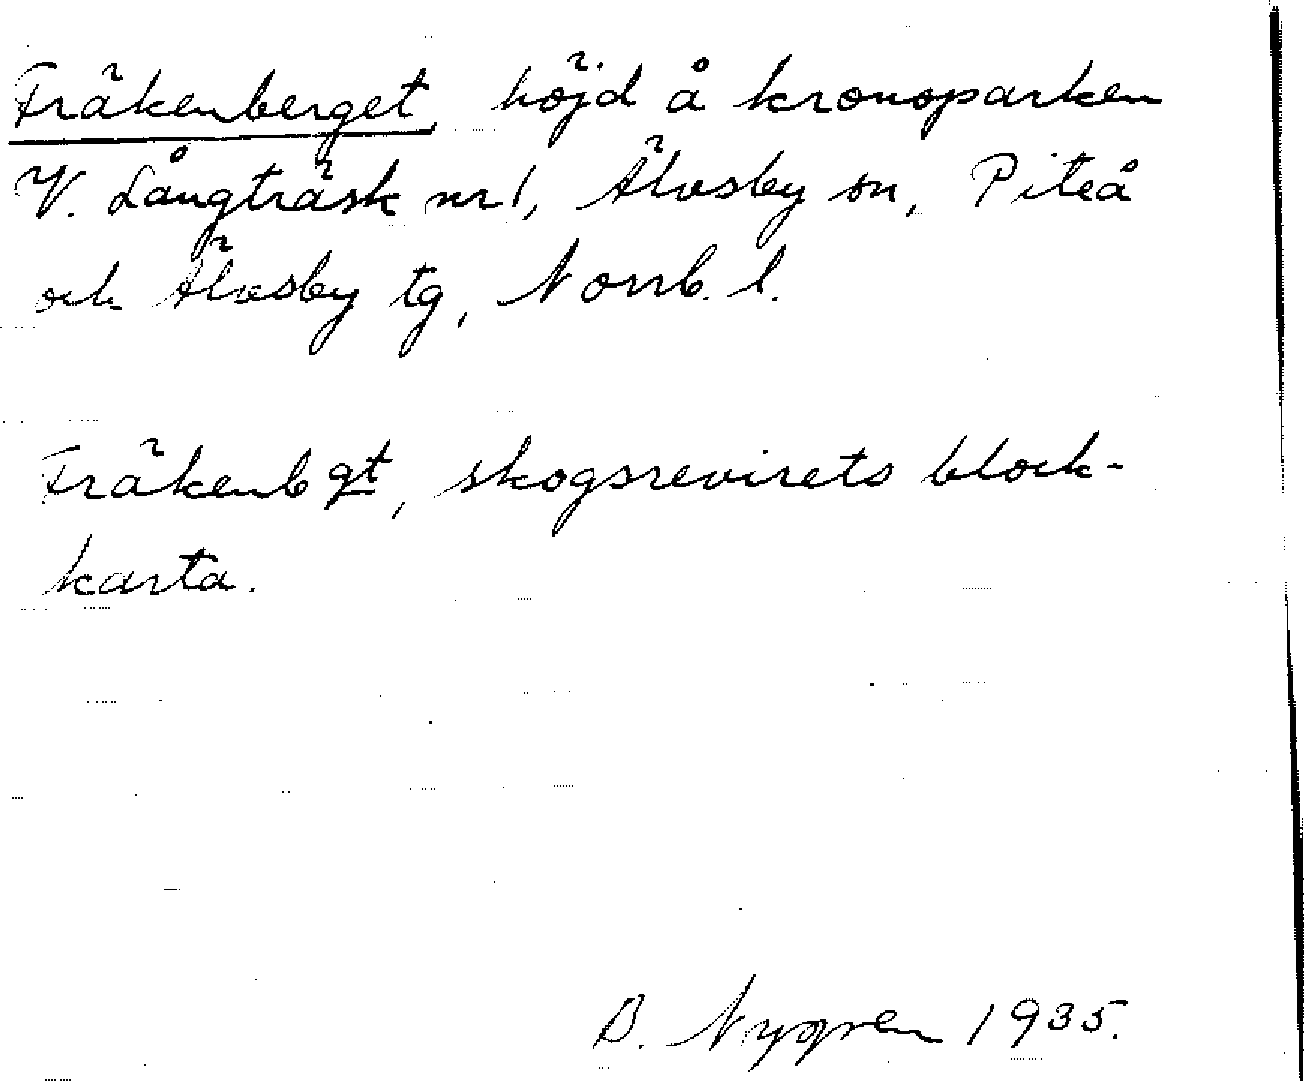 Fräkenberget, höjd å kronoparken
V. Långträsk nr 1, Älvsby sn, Piteå
och Älvsby tg, Norrb. l.
Fräkenbgt, skogsrevirets block-
karta.
B. Nygren 1935.